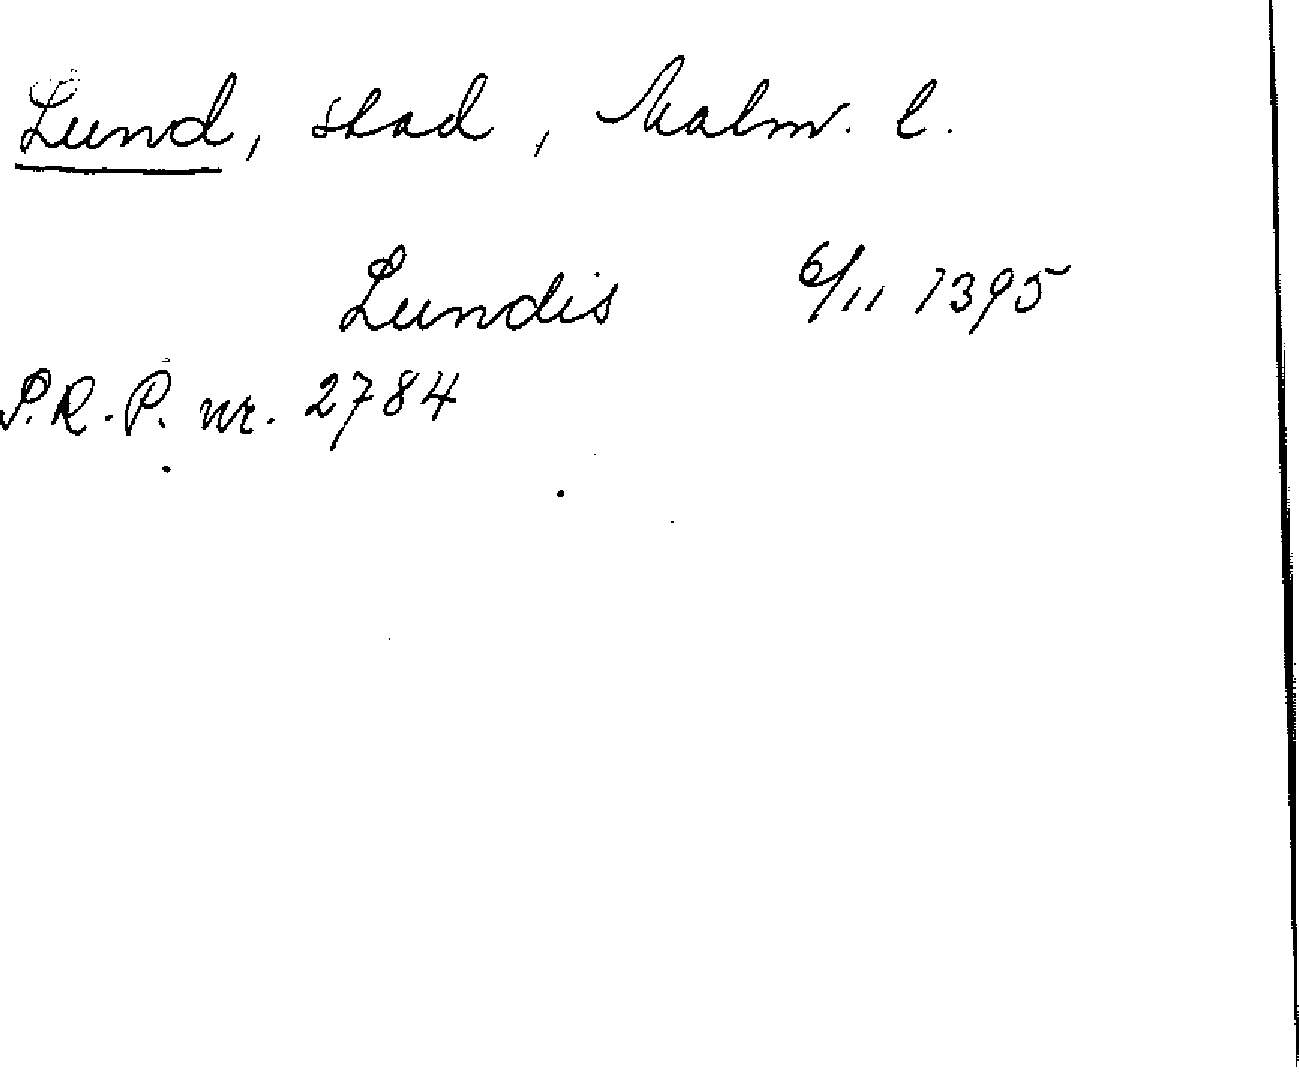 Lund, stad, Malm. l.
Lundis 6/11 1395
P.R.P. nr. 2784